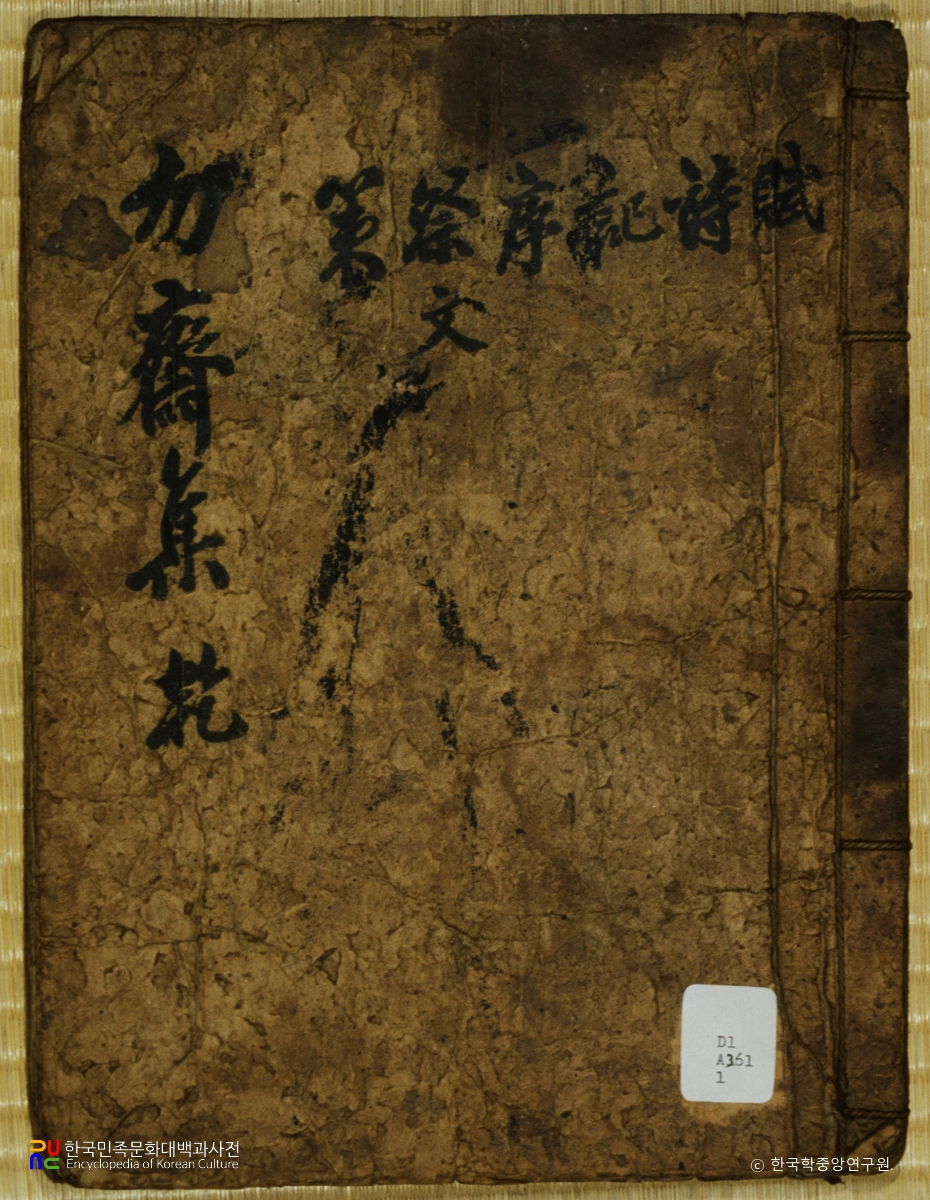 賦
詩
記
序
祭文
策
勿齋集 乾
D1
A361
1
한국민족문화대백과사전
Encyclopedia of Korean Culture
© 한국학중앙연구원